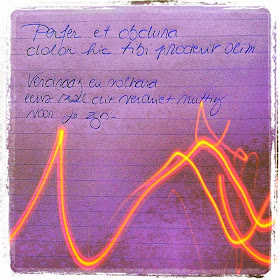 Perfer et obdura
dolor hic tibi proderit olim
Verdraag en volhard
eens zal dit verdriet nuttig
voor je zijn-